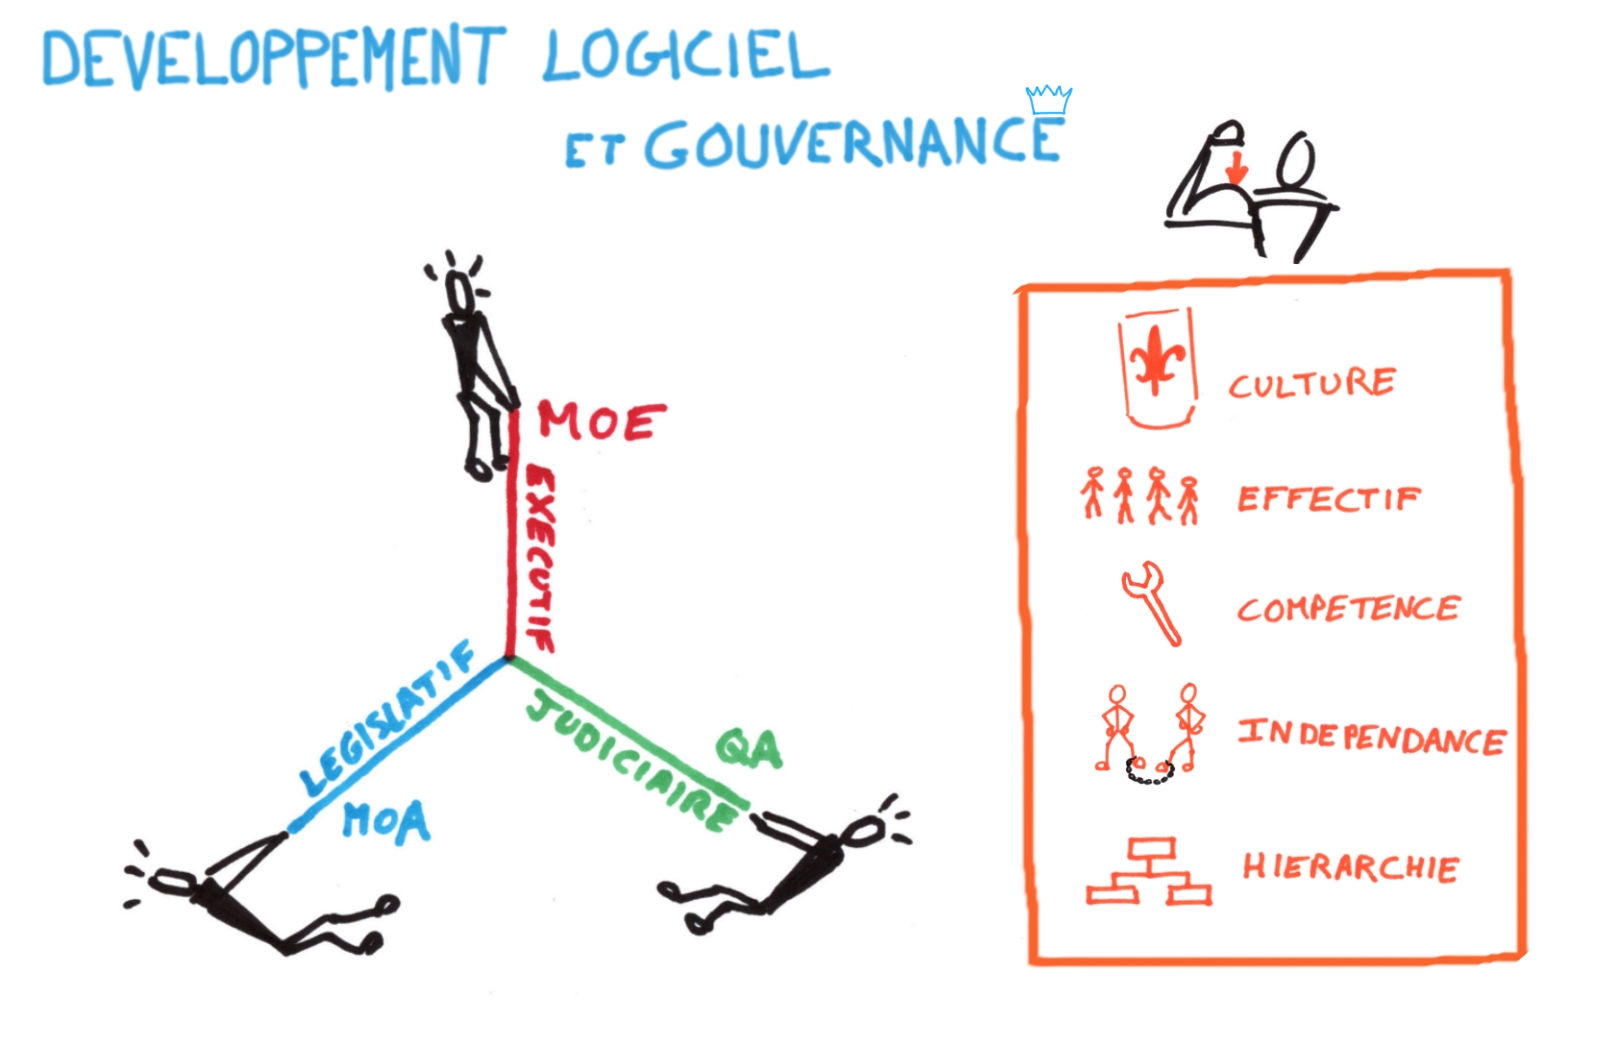 DEVELOPPEMENT LOGICIEL
ET GOUVERNANCE
MOE
EXECUTIF
LEGISLATIF
MOA
JUDICIAIRE
QA
CULTURE
EFFECTIF
COMPETENCE
INDEPENDANCE
HIERARCHIE